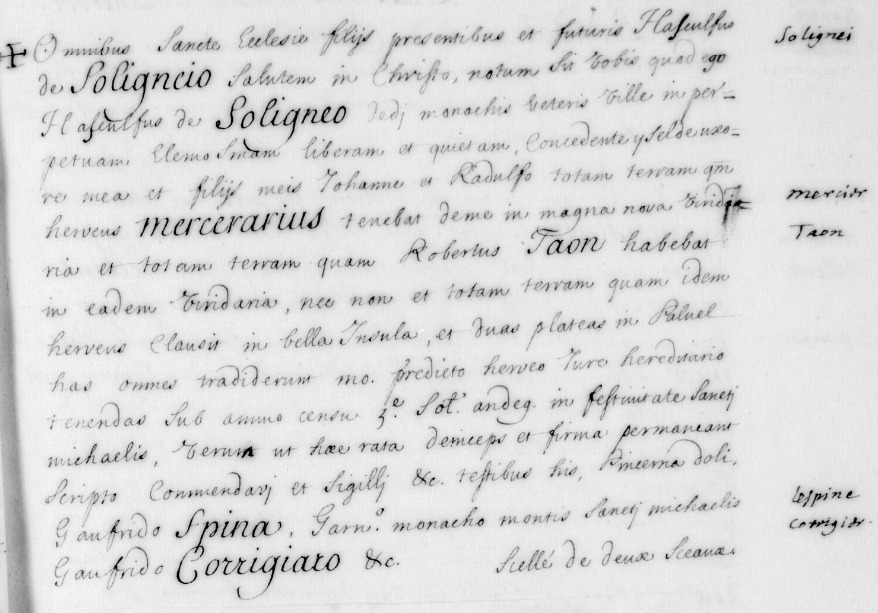 Omnibus Sancte Ecclesie filijs presentibus et futuris Hasculfus
Solignei
de Soligneio Salutem in Christo, notum Sit Vobis quod ego
Hasculfus de Soligneo dedj monachis Veteris Ville in per=
petuam Elemosinam liberam et quietam, Concedente yselde uxo=
re mea et filijs meis Johanne et Radulfo totam terram qm̄
herveus mercerarius tenebat de me in magna nova Virida=
mercier
ria et totam terram quam Robertus Taon habebat
Taon
in eadem Viridaria, nec non et totam terram quam idem
herveus Clausit in bella Insula, et duas plateas in Paluel
has omnes tradiderunt mo. predicto herveo Jure hereditario
tenendas Sub annuo censu 3.e Sol. andeg. in festivitate Sanctj
michaelis, Verum ut hæc rata deinceps et firma permaneant
Scripto Commendavj et Sigillj &c. testibus his, Pincerna doli,
Gaufrido Spina, Garn.o monacho montis Sanctj michaelis
lespine
Gaufrido Corrigiaro &c. Scellé de deux Sceaux.
corrigier.